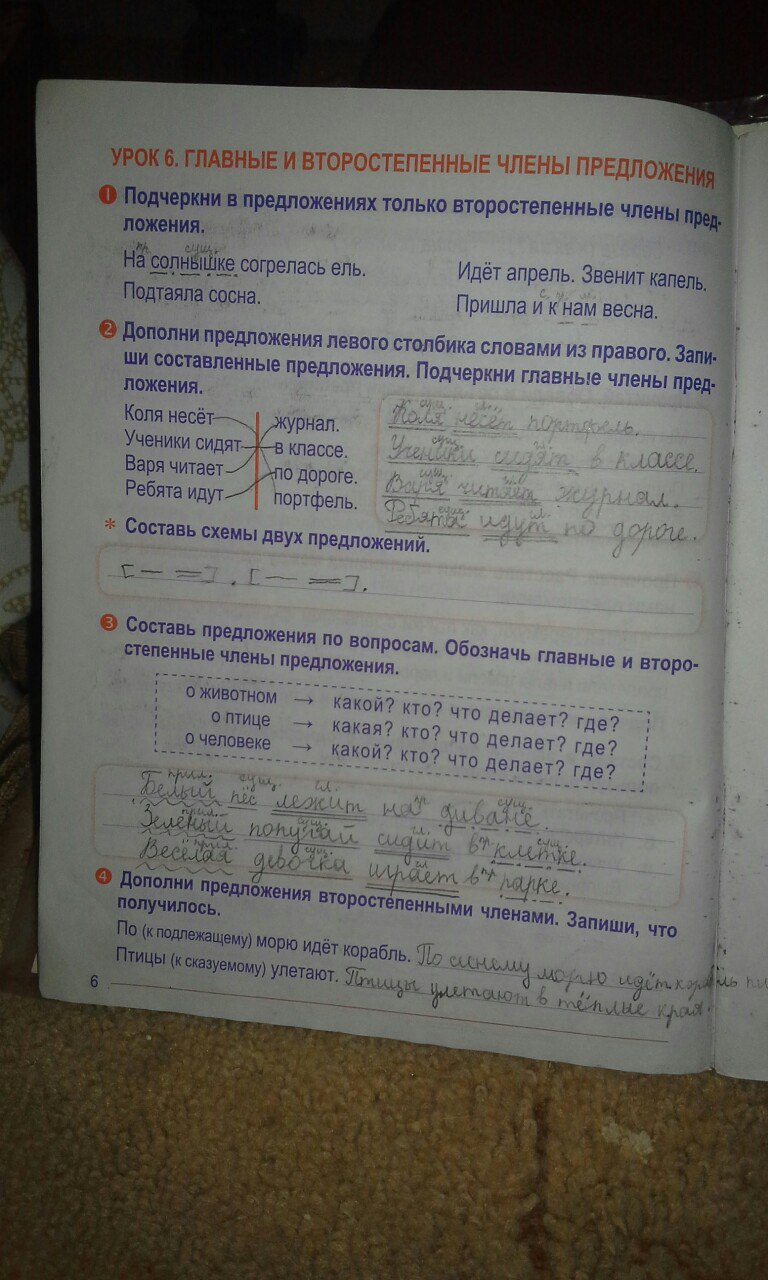 УРОК 6. ГЛАВНЫЕ И ВТОРОСТЕПЕННЫЕ ЧЛЕНЫ ПРЕДЛОЖЕНИЯ
1 Подчеркни в предложениях только второстепенные члены пред-
ложения.
пр. сущ.
На солнышке согрелась ель.
Идёт апрель. Звенит капель.
Подтаяла сосна.
Пришла и к нам весна.
2 Дополни предложения левого столбика словами из правого. Запи-
ши составленные предложения. Подчеркни главные члены пред-
ложения.
Коля несёт журнал.
Ученики сидят в классе.
Варя читает по дороге.
Ребята идут портфель.
сущ. гл.
Коля несёт портфель.
сущ. гл.
Ученики сидят в классе.
сущ. гл.
Варя читает журнал.
сущ. гл.
Ребята идут по дороге.
* Составь схемы двух предложений.
[— =]. [— =].
3 Составь предложения по вопросам. Обозначь главные и второ-
степенные члены предложения.
о животном → какой? кто? что делает? где?
о птице → какая? кто? что делает? где?
о человеке → какой? кто? что делает? где?
прил. сущ. гл. пр. сущ.
Белый пёс лежит на диване.
прил. сущ. гл. пр. сущ.
Зелёный попугай сидит в клетке.
прил. сущ. гл. пр.
Весёлая девочка играет в парке.
4 Дополни предложения второстепенными членами. Запиши, что
получилось.
По (к подлежащему) морю идёт корабль. По синему морю идёт корабль
Птицы (к сказуемому) улетают. Птицы улетают в тёплые края.
6